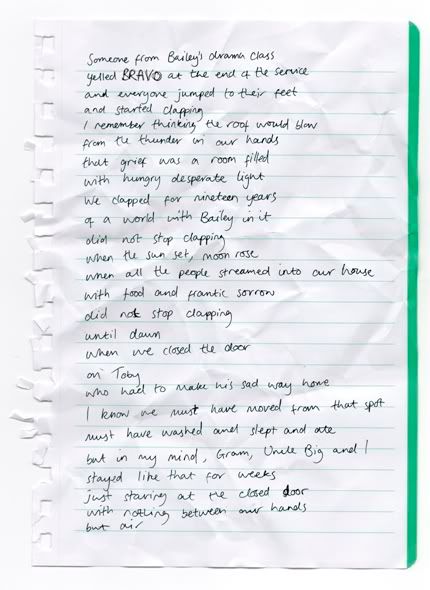 Someone from Bailey's drama class
yelled BRAVO at the end of the service
and everyone jumped to their feet
and started clapping
I remember thinking the roof would blow
from the thunder in our hands
that grief was a room filled
with hungry desperate light
We clapped for nineteen years
of a world with Bailey in it
did not stop clapping
when the sun set, moon rose
when all the people streamed into our house
with food and frantic sorrow
did not stop clapping
until dawn
when we closed the door
on Toby
who had to make his sad way home
I know we must have moved from that spot
must have washed and slept and ate
but in my mind, Gram, Uncle Big and I
stayed like that for weeks
just staring at the closed door
with nothing between our hands
but air